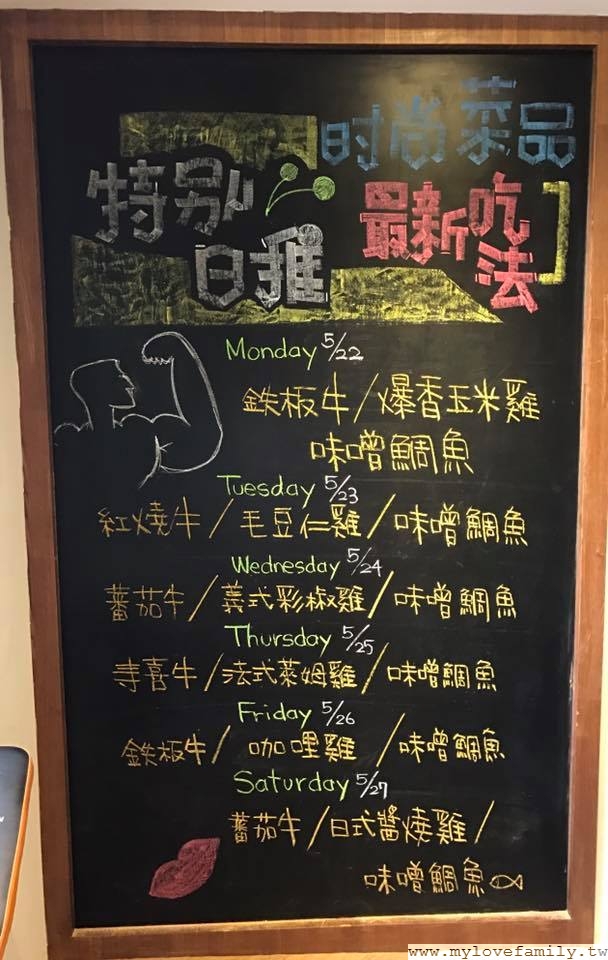 时尚菜品
特别
日推
最新吃法
Monday 5/22
鉄板牛/爆香玉米雞
味噌鯛魚
Tuesday 5/23
紅燒牛/毛豆仁雞/味噌鯛魚
Wednesday 5/24
蕃茄牛/義式彩椒雞/味噌鯛魚
Thursday 5/25
寿喜牛/法式萊姆雞/味噌鯛魚
Friday 5/26
鉄板牛/咖哩雞/味噌鯛魚
Saturday 5/27
蕃茄牛/日式醬燒雞/
味噌鯛魚
www.mylovefamily.tw